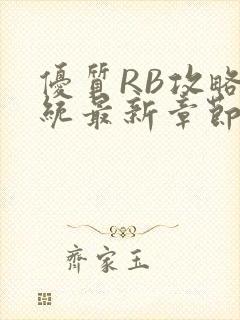 優質RB攻略
統最新章節
齊家玉